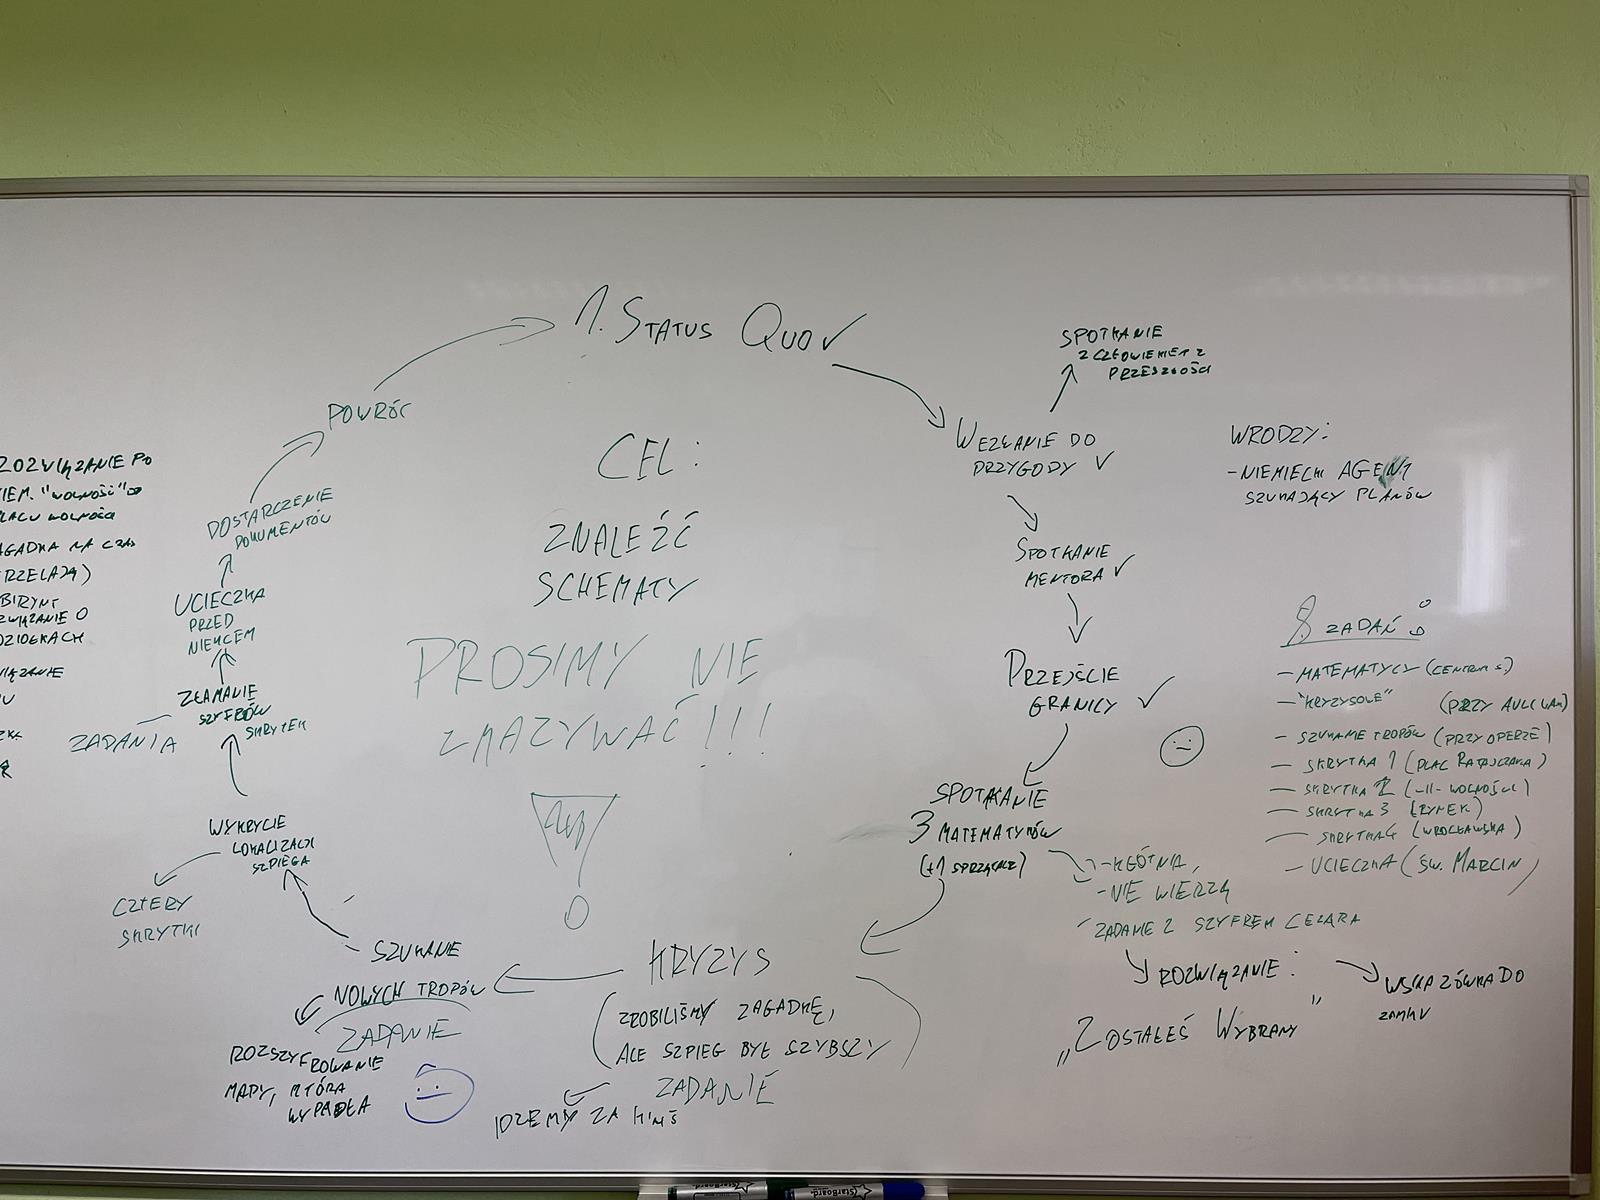 1. STATUS QUO ✓
SPOTKANIE
Z CZŁOWIEKIEM Z
PRZESZŁOŚCI
WEZWANIE DO
PRZYGODY ✓
SPOTKANIE
MENTORA ✓
PRZEJŚCIE
GRANICY ✓
SPOTKANIE
3 MATEMATYKÓW
(+1 SPRZĄTACZ)
- KŁÓTNIA,
- NIE WIERZĄ
ZADANIE Z SZYFREM CEZARA
ROZWIĄZANIE:
„ZOSTAŁEŚ WYBRANY"
WSKAZÓWKA DO
ZAMKU
KRYZYS
(ZROBILIŚMY ZAGADKĘ,
ALE SZPIEG BYŁ SZYBSZY)
ZADANIE
IDZEMY ZA KIMŚ
SZUKANIE
NOWYCH TROPÓW
ZADANIE
ROZSZYFROWANIE
MAPY, KTÓRA
WYPADŁA
WYKRYCIE
LOKALIZACJI
SZPIEGA
CZTERY
SKRYTKI
ZŁAMANIE
SZYFRÓW
SKRYTEK
ZADANIA
UCIECZKA
PRZED
NIEMCEM
DOSTARCZENIE
DOKUMENTÓW
POWRÓT
CEL:
ZNALEŹĆ
SCHEMATY
PROSIMY NIE
ZMAZYWAĆ!!!
WRODZY:
- NIEMIECKI AGENT
SZUKAJĄCY PLANÓW
8 ZADAŃ:
- MATEMATYCY
- "KRYZYSOWE" (PRZY AULI UAM)
- SZUKANIE TROPÓW (PRZY OPERZE)
- SKRYTKA 1 (PLAC RATAJCZAKA)
- SKRYTKA 2 (-II- WOLNOŚCI)
- SKRYTKA 3 (RYNEK)
- SKRYTKA 4 (WROCŁAWSKA)
- UCIECZKA (ŚW. MARCIN)
ROZWIĄZANIE PO
NIEM. "WOLNOŚĆ"
PLACU WOLNOŚCI
ZAGADKA NA CZAS
StarBoard
StarBoard